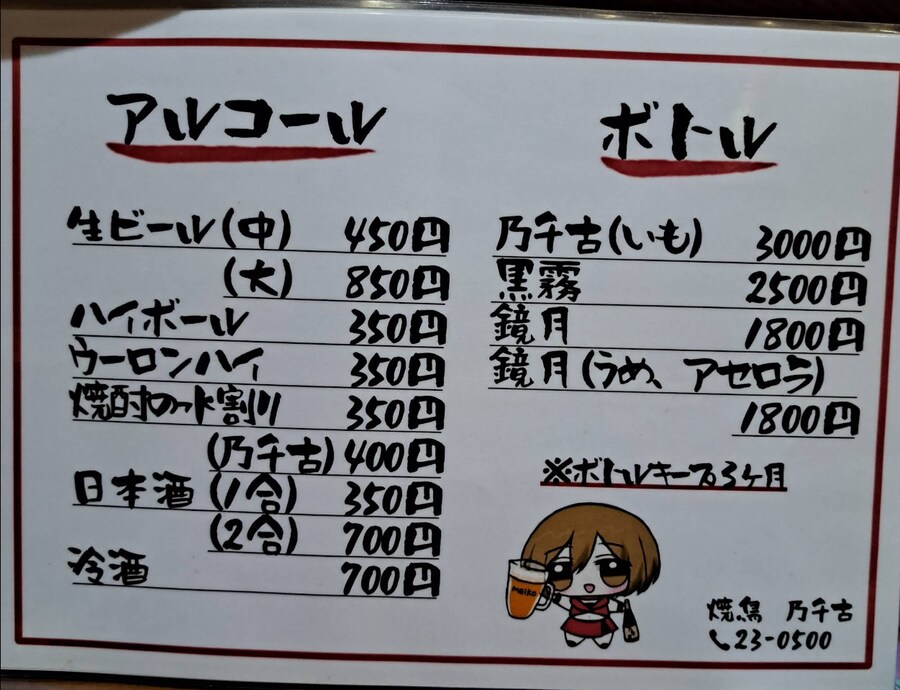 アルコール
生ビール(中) 450円
(大) 850円
ハイボール 350円
ウーロンハイ 350円
焼酎の水割り 350円
(乃千古) 400円
日本酒(1合) 350円
(2合) 700円
冷酒 700円
ボトル
乃千古(いも) 3000円
黒霧 2500円
鏡月 1800円
鏡月(うめ、アセロラ)
1800円
※ボトルキープ3ヶ月
meiko
焼鳥 乃千古
23-0500